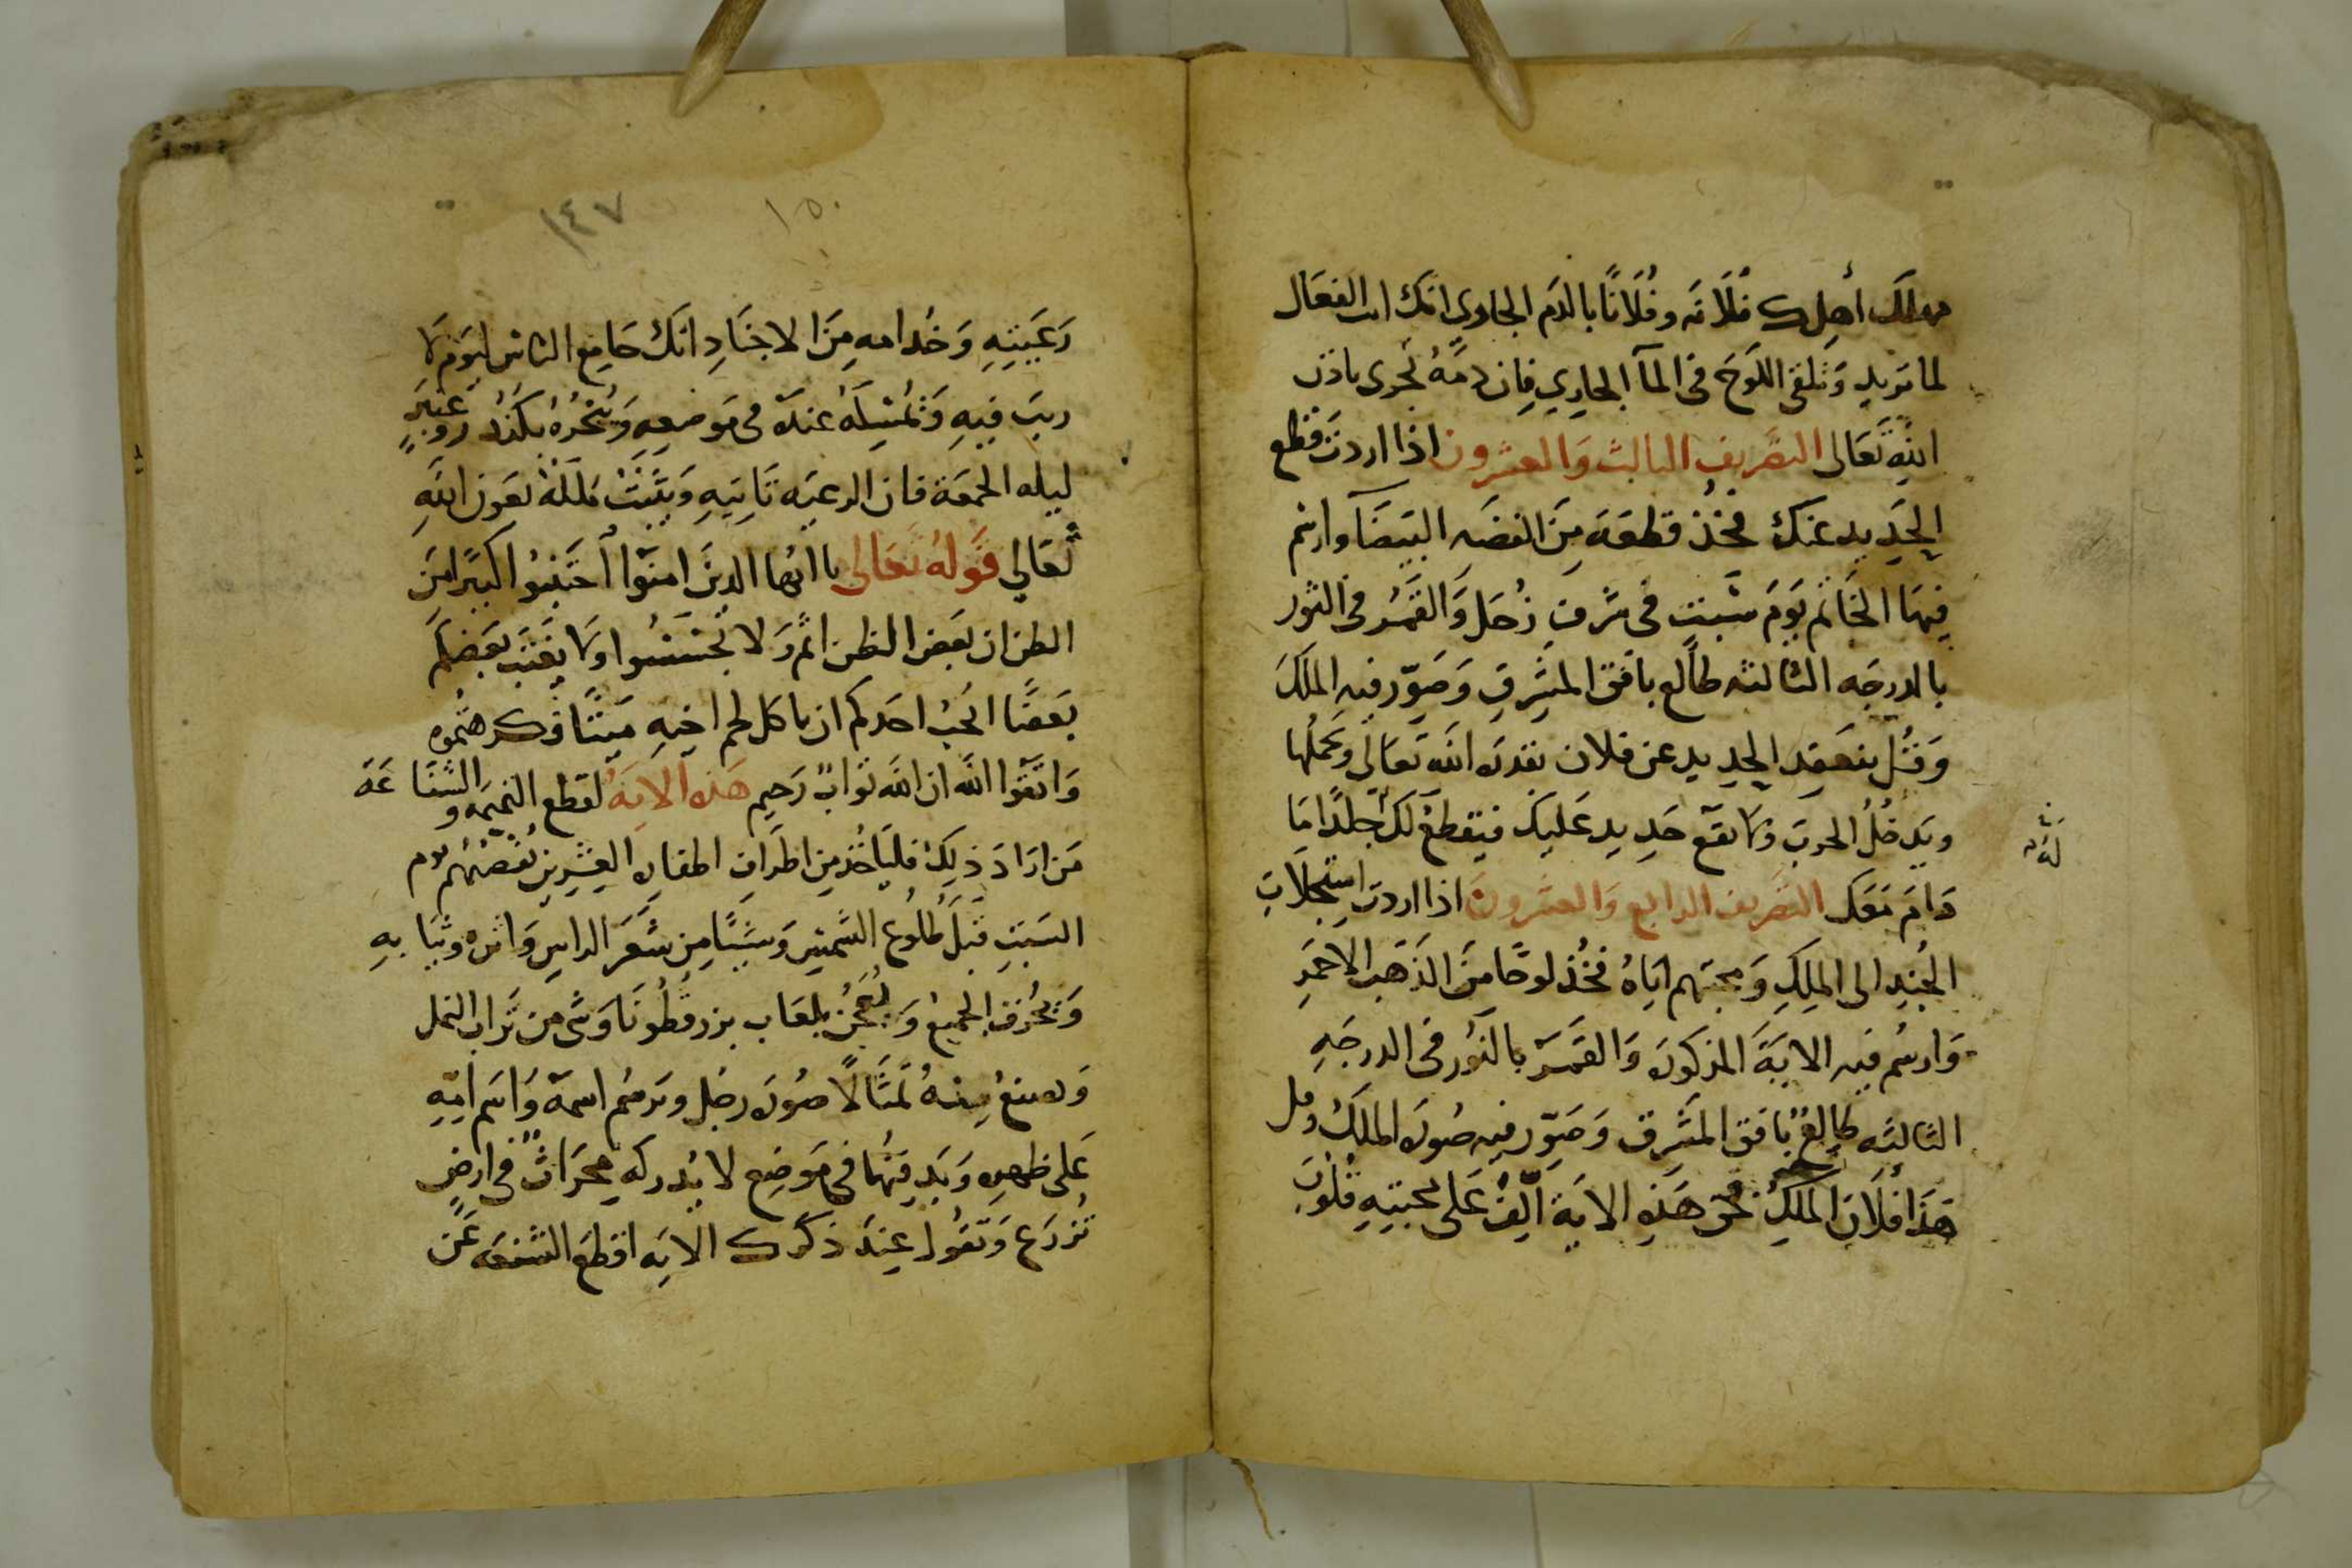 أهلك فلانه وفلانًا بالدم الجاري انك انت الفعال
لما تريد وتلقى اللوح في المآ الجاري فان دمه يجرى باذن
الله تعالى التصريف الثالث والعشرون اذا اردت قطع
الحديد عنك فخذ قطعة من الفضه البيضآ وارسم
فيها الخاتم يوم سبت في شرف زحل والقمر في الثور
بالدرجه الثالثه طالع بافق المشرق وصور فيه الملك
وقل ينعقد الحديد عن فلان بقدرة الله تعالى وتحملها
ويدخل الحرب فما يقع حديد عليك فيقطع لك جلدا ما
دام معك التصريف الرابع والعشرون اذا اردت استجلاب
الجند الى الملك ومحبتهم اياه فخذ لوحًا من الذهب الاحمر
وارسم فيه الاية المذكورة والقمر بالثور في الدرجه
الثالثه طالع بافق المشرق وصور فيه صورة الملك وقل
هذا فلان الملك بحق هذه الاية الف على محبته قلوب
١٤٧ ١٥٠
رعيته وخدامه من الاجناد انك جامع الناس ليوم لا
ريب فيه وتمسكه عنده في موضعه وتبخره بكندر وعنبر
ليله الجمعة فان الرعيه تاتيه ويثبت ملكه بعون الله
تعالي قوله تعالى يا ايها الذين امنوا اجتنبوا كثيرا من
الظن ان بعض الظن اثم ولا تجسسوا ولا يغتب بعضكم
بعضًا ايحب احدكم ان ياكل لحم اخيه ميتًا فكرهتموه
واتقوا الله ان الله تواب رحيم هذه الاية لقطع النميمه والشناعة
من اراد ذلك فلياخذ من اطراف اظفاره العشرين يقصهم يوم
السبت قبل طلوع الشمس وشيئًا من شعر الراس واثره وثيابه
ويحرق الجميع ويعجن بلعاب بزرقطونا وشى من تراب النمل
ويصنع منه تمثالًا صورة رجل ويرسم اسمه واسم امه
على ظهره ويدفنها في موضع لا يدركه محراث في ارض
تزرع وتقول عند ذكرك الايه اقطع الشنعه عن